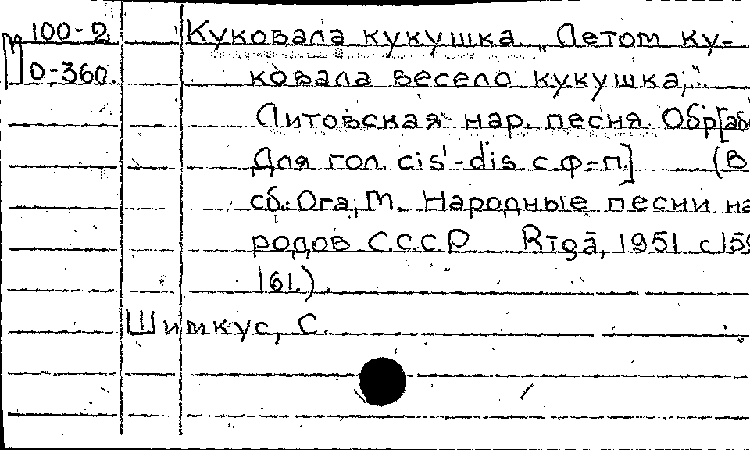 М 100-2 Куковала кукушка „Летом ку-
О-360. ковала весело кукушка,"
Литовская нар. песня. Обр[аб
Для гол. cis'-dis с ф-п] (В
сб.: Ога, М. Народные песни на
родов СССР Rīgā, 1951 с 159
161.)
Шимкус, С.